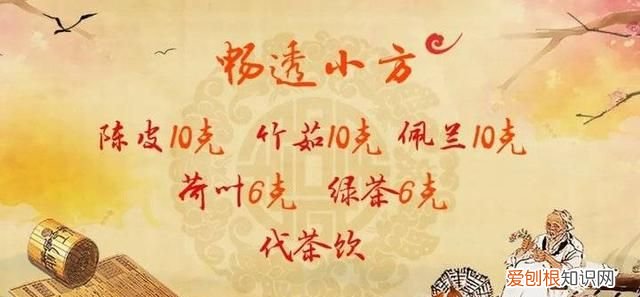 畅透小方
陈皮10克 竹茹10克 佩兰10克
荷叶6克 绿茶6克
代茶饮
爱刨根知识网